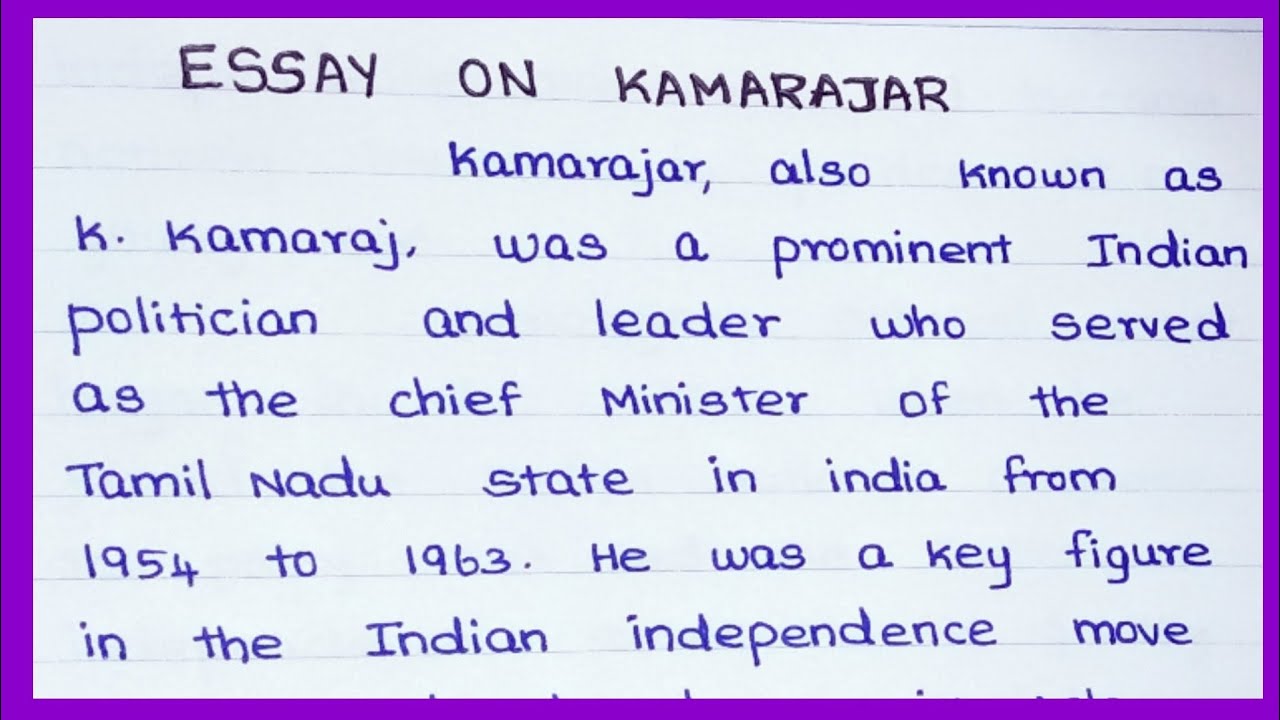 ESSAY ON KAMARAJAR
Kamarajar, also known as
K. Kamaraj, was a prominent Indian
politician and leader who served
as the chief Minister of the
Tamil Nadu state in india from
1954 to 1963. He was a key figure
in the Indian independence move